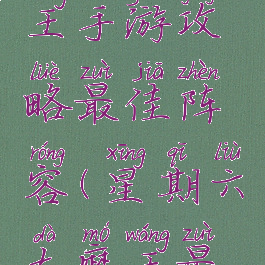 王手游攻
lüè zuì jiā zhèn
略最佳阵
róng xīng qī liù
容(星期六
dà mó wáng zuì
大魔王最